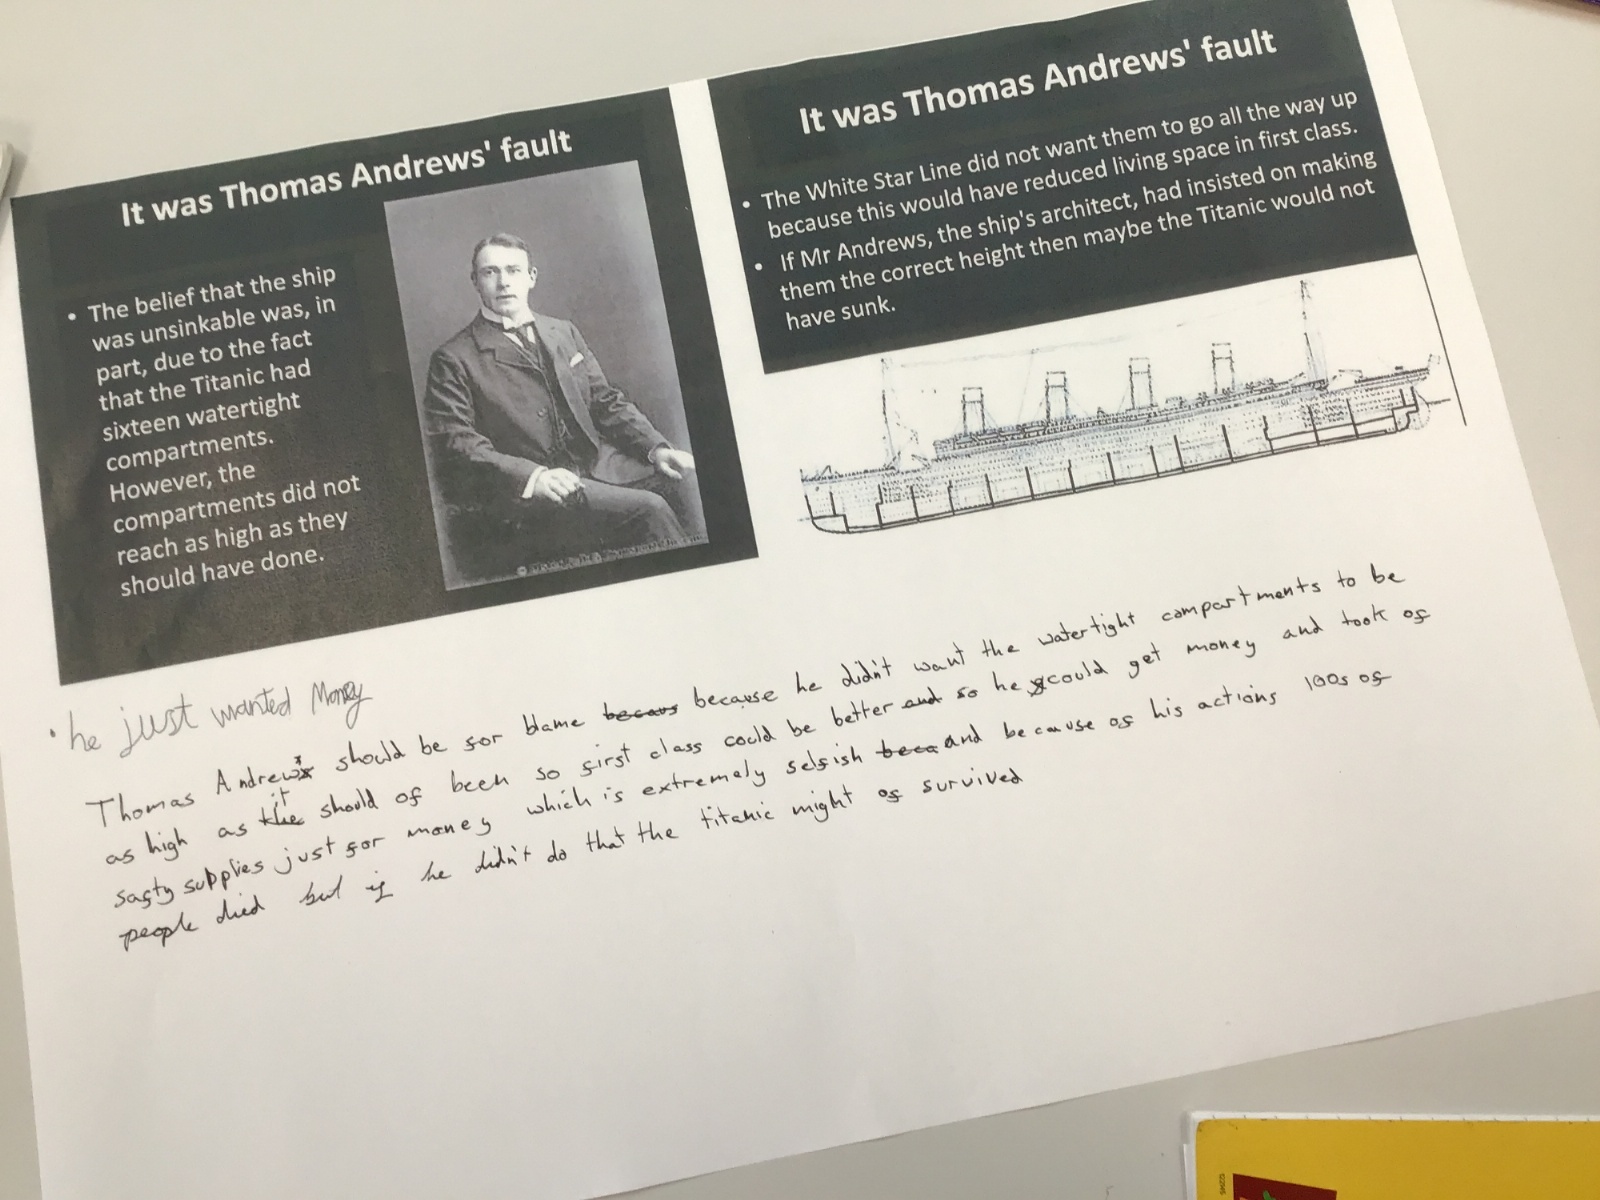 It was Thomas Andrews' fault
• The belief that the ship
was unsinkable was, in
part, due to the fact
that the Titanic had
sixteen watertight
compartments.
However, the
compartments did not
reach as high as they
should have done.
It was Thomas Andrews' fault
• The White Star Line did not want them to go all the way up
because this would have reduced living space in first class.
• If Mr Andrews, the ship's architect, had insisted on making
them the correct height then maybe the Titanic would not
have sunk.
• he just wanted Money
Thomas Andrews should be for blame becaus because he didn't want the watertight compartments to be
as high as the it should of been so first class could be better and so he could get money and took of
safty supplies just for money which is extremely selfish beca and because of his actions 100s of
people died but if he didn't do that the titanic might of survived